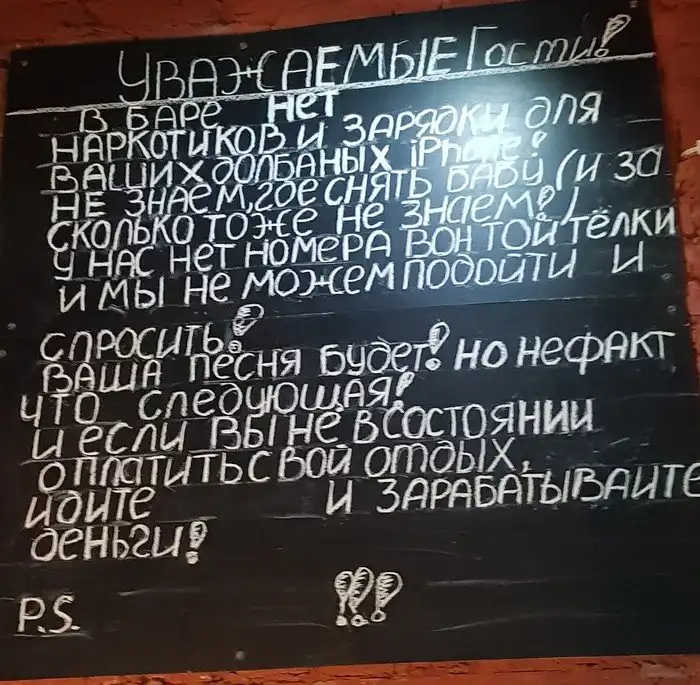 УВАЖАЕМЫЕ Гости!
В БАРЕ НЕТ
НАРКОТИКОВ И ЗАРЯДКИ ДЛЯ
ВАШИХ ДОЛБАНЫХ iPhone!
НЕ ЗНАЕМ, ГДЕ СНЯТЬ БАБУ (И ЗА
СКОЛЬКО ТОЖЕ НЕ ЗНАЕМ!)
У НАС НЕТ НОМЕРА ВОН ТОЙ ТЁЛКИ
И МЫ НЕ МОЖЕМ ПОДОЙТИ И
СПРОСИТЬ!
ВАША ПЕСНЯ БУДЕТ! НО НЕФАКТ
ЧТО СЛЕДУЮЩАЯ!
И ЕСЛИ ВЫ НЕ В СОСТОЯНИИ
ОПЛАТИТЬ СВОЙ ОТДЫХ,
ИДИТЕ И ЗАРАБАТЫВАЙТЕ
ДЕНЬГИ!
P.S. !!!